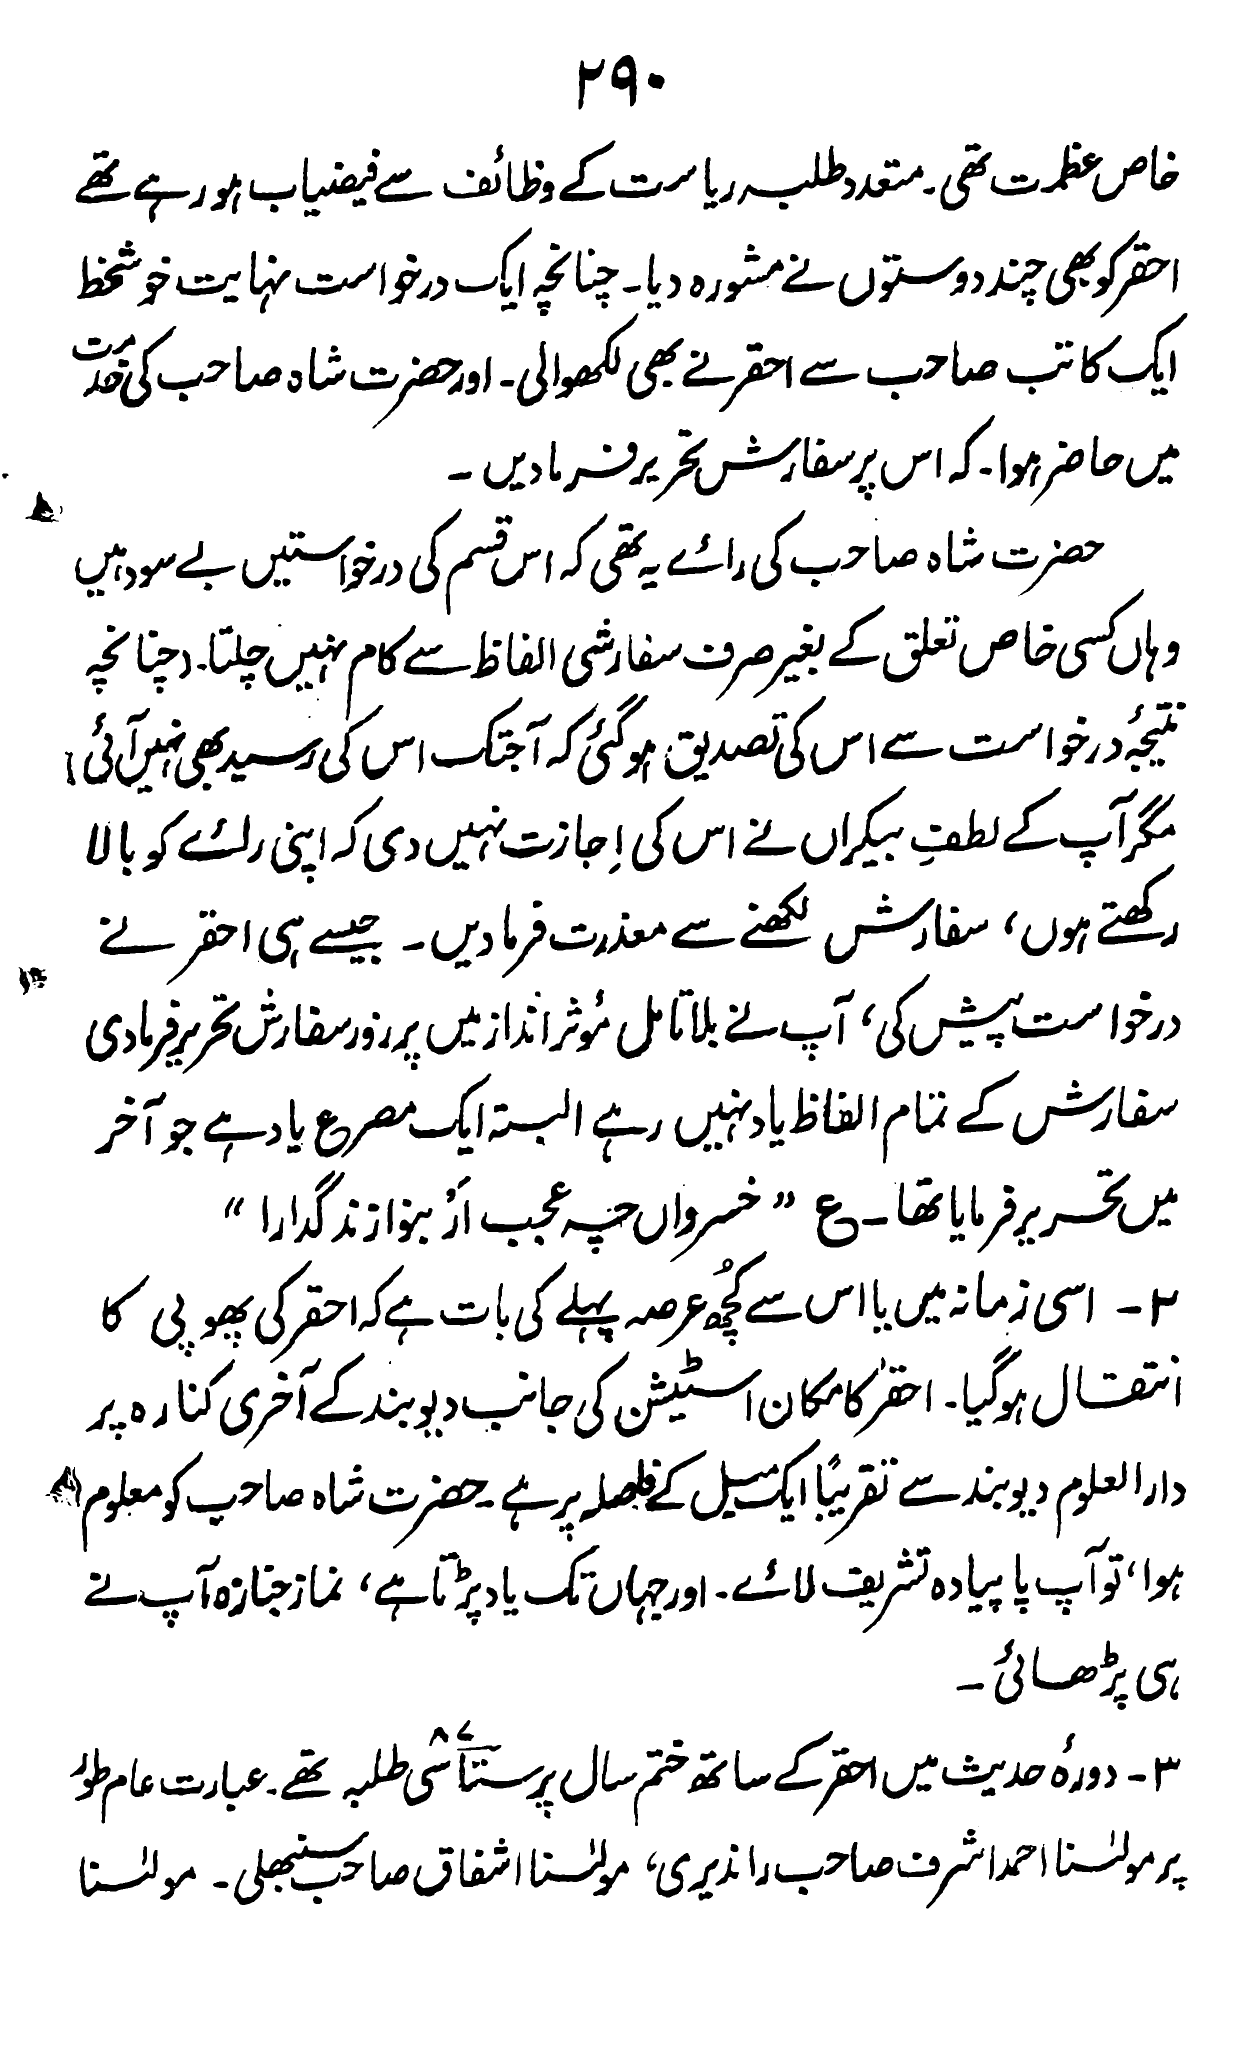 ۲۹۰
خاص عظمت تھی۔ متعدد طلبہ ریاست کے وظائف سے فیضیاب ہو رہے تھے
احقر کو بھی چند دوستوں نے مشورہ دیا۔ چنانچہ ایک درخواست نہایت خوشخط
ایک کاتب صاحب سے احقر نے بھی لکھوالی۔ اور حضرت شاہ صاحب کی خدمت
میں حاضر ہوا۔ کہ اس پر سفارش تحریر فرمادیں۔
حضرت شاہ صاحب کی رائے یہ تھی کہ اس قسم کی درخواستیں بے سود ہیں
وہاں کسی خاص تعلق کے بغیر صرف سفارشی الفاظ سے کام نہیں چلتا۔ (چنانچہ
نتیجۂ درخواست سے اس کی تصدیق ہوگئی کہ آجتک اس کی رسید بھی نہیں آئی)
مگر آپ کے لطفِ بیکراں نے اس کی اِجازت نہیں دی کہ اپنی رائے کو بالا
رکھتے ہوں، سفارش لکھنے سے معذرت فرمادیں۔ جیسے ہی احقر نے
درخواست پیش کی، آپ نے بلا تامل مُوثر انداز میں پر زور سفارش تحریر فرمادی
سفارش کے تمام الفاظ یاد نہیں رہے البتہ ایک مصرع یاد ہے جو آخر
میں تحریر فرمایا تھا۔ ع ” خسرواں چہ عجب اَرْ بنوازند گدارا “
۲۔ اسی زمانہ میں یا اس سے کُچھ عرصہ پہلے کی بات ہے کہ احقر کی پھوپی کا
انتقال ہوگیا۔ احقر کا مکان اسٹیشن کی جانب دیوبند کے آخری کنارہ پر
دارالعلوم دیوبند سے تقریبًا ایک میل کے فاصلہ پر ہے۔ حضرت شاہ صاحب کو معلوم
ہوا، تو آپ پا پیادہ تشریف لائے۔ اور جہاں تک یاد پڑتا ہے، نماز جنازہ آپ نے
ہی پڑھائی۔
۳۔ دورۂ حدیث میں احقر کے ساتھ ختم سال پر ستاسی ۸۷ طلبہ تھے۔ عبارت عام طور
پر مولٰنا احمد اشرف صاحب راندیری، مولٰنا اشفاق صاحب سنبھلی۔ مولٰنا